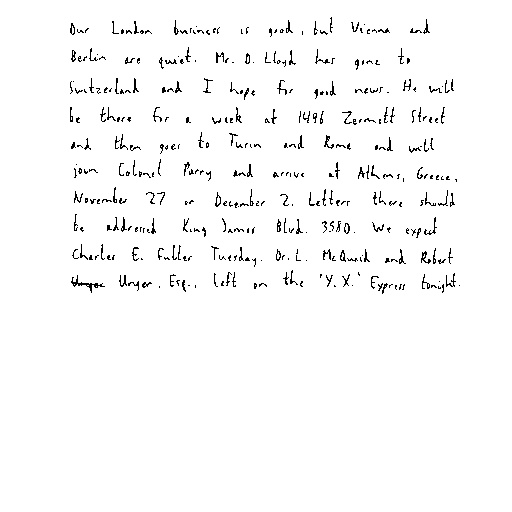 Our London business is good, but Vienna and
Berlin are quiet. Mr. D. Lloyd has gone to
Switzerland and I hope for good news. He will
be there for a week at 1496 Zermott Street
and then goes to Turin and Rome and will
join Colonel Parry and arrive at Athens, Greece,
November 27 or December 2. Letters there should
be addressed King James Blvd. 3580. We expect
Charles E. Fuller Tuesday. Dr. L. McQuaid and Robert
Unger, Esq., left on the 'Y.X.' Express tonight.